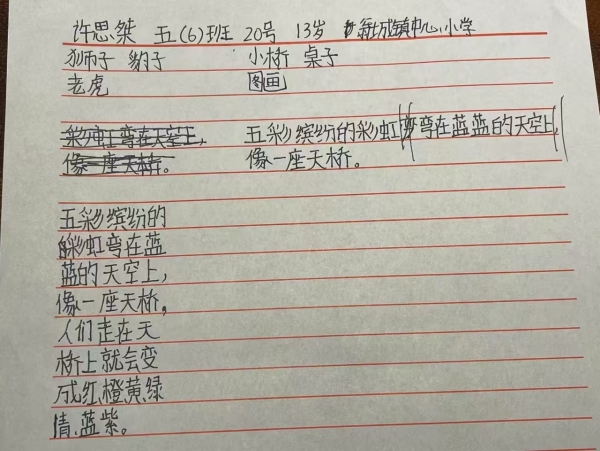 许思桀 五(6)班 20号 13岁 城镇中心小学
狮子 豹子 小桥 桌子
老虎 图画
彩虹弯在天空上, 五彩缤纷的彩虹弯在蓝蓝的天空上,
像一座天桥。 像一座天桥。
五彩缤纷的
彩虹弯在蓝
蓝的天空上,
像一座天桥。
人们走在天
桥上就会变
成红、橙、黄、绿
情、蓝紫。